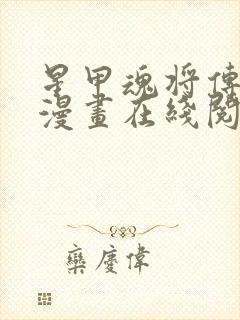 星甲魂将傳
漫畫在綫閱
欒慶偉